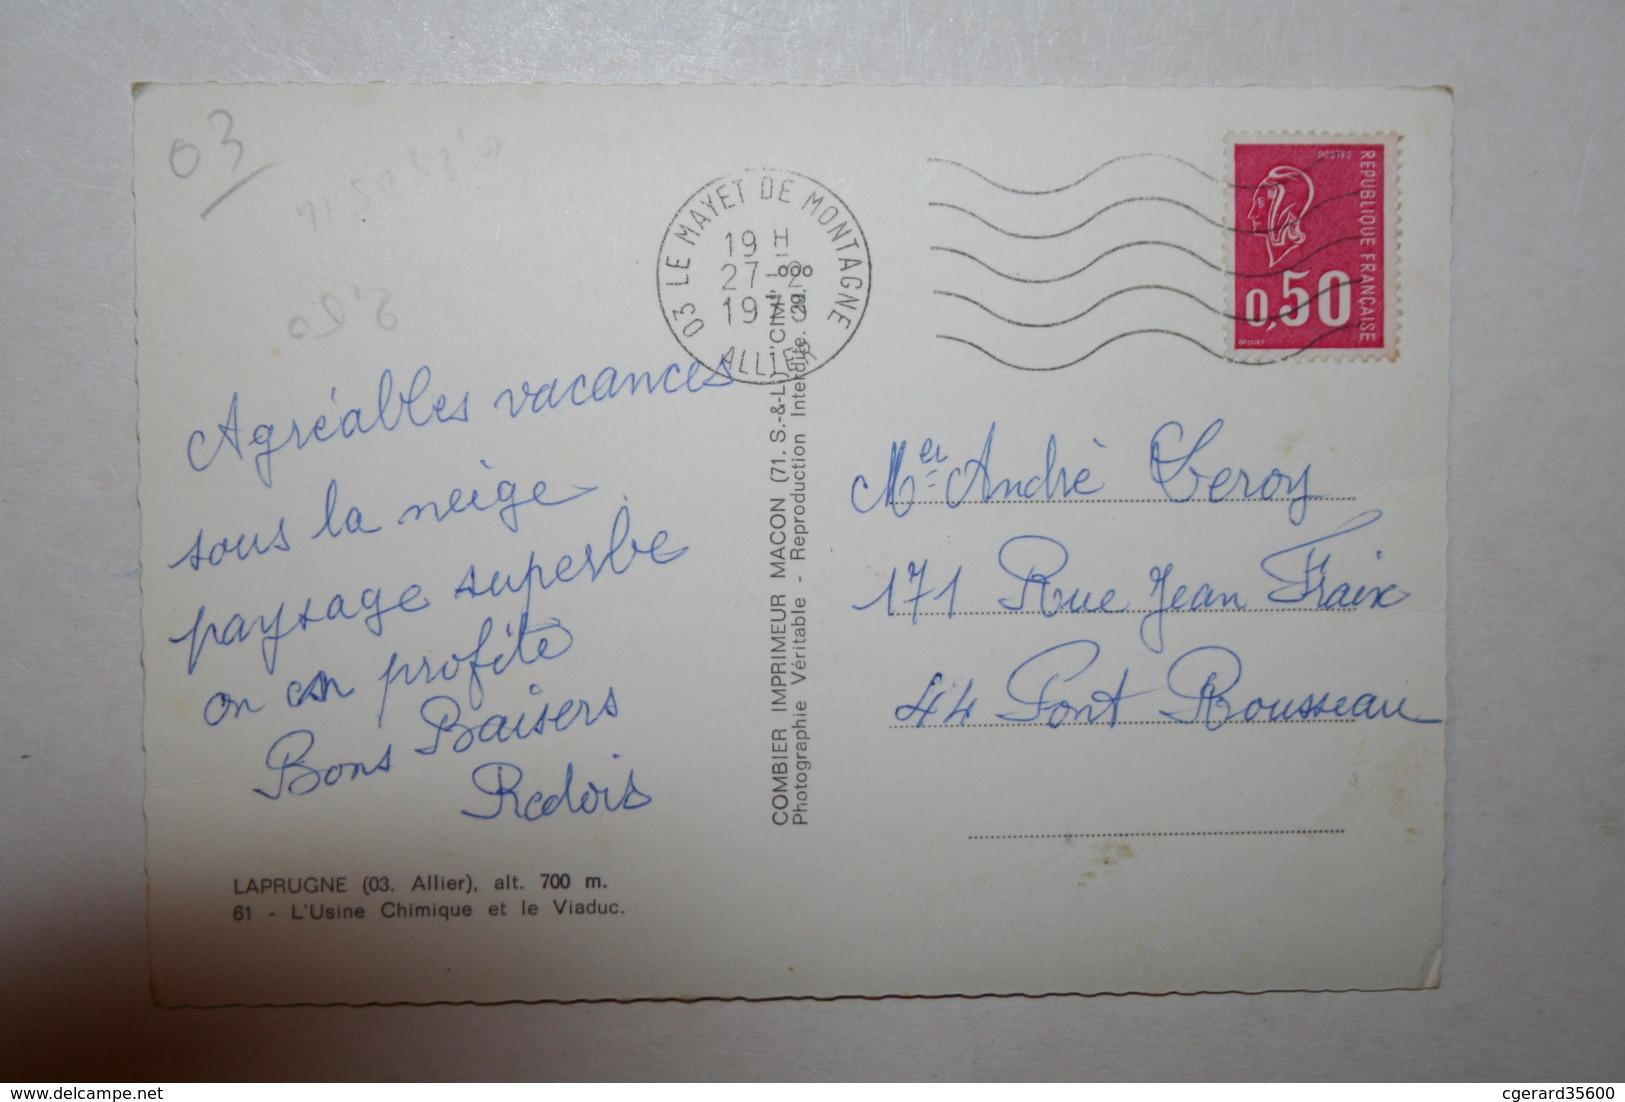 03
2,20
03 LE MAYET DE MONTAGNE
19 H
27-2
19
ALLIER
POSTES
REPUBLIQUE FRANÇAISE
0,50
BEQUET
Agréables vacances
sous la neige
paysage superbe
on en profite
Bons Baisers
LAPRUGNE (03. Allier), alt. 700 m.
61 - L'Usine Chimique et le Viaduc.
COMBIER IMPRIMEUR MACON (71. S.-&-L.) "CIM"
Photographie Véritable - Reproduction Interdite.
Mer André Leroy
171 Rue Jean Fraix
44 Pont Rousseau
cgerard35600